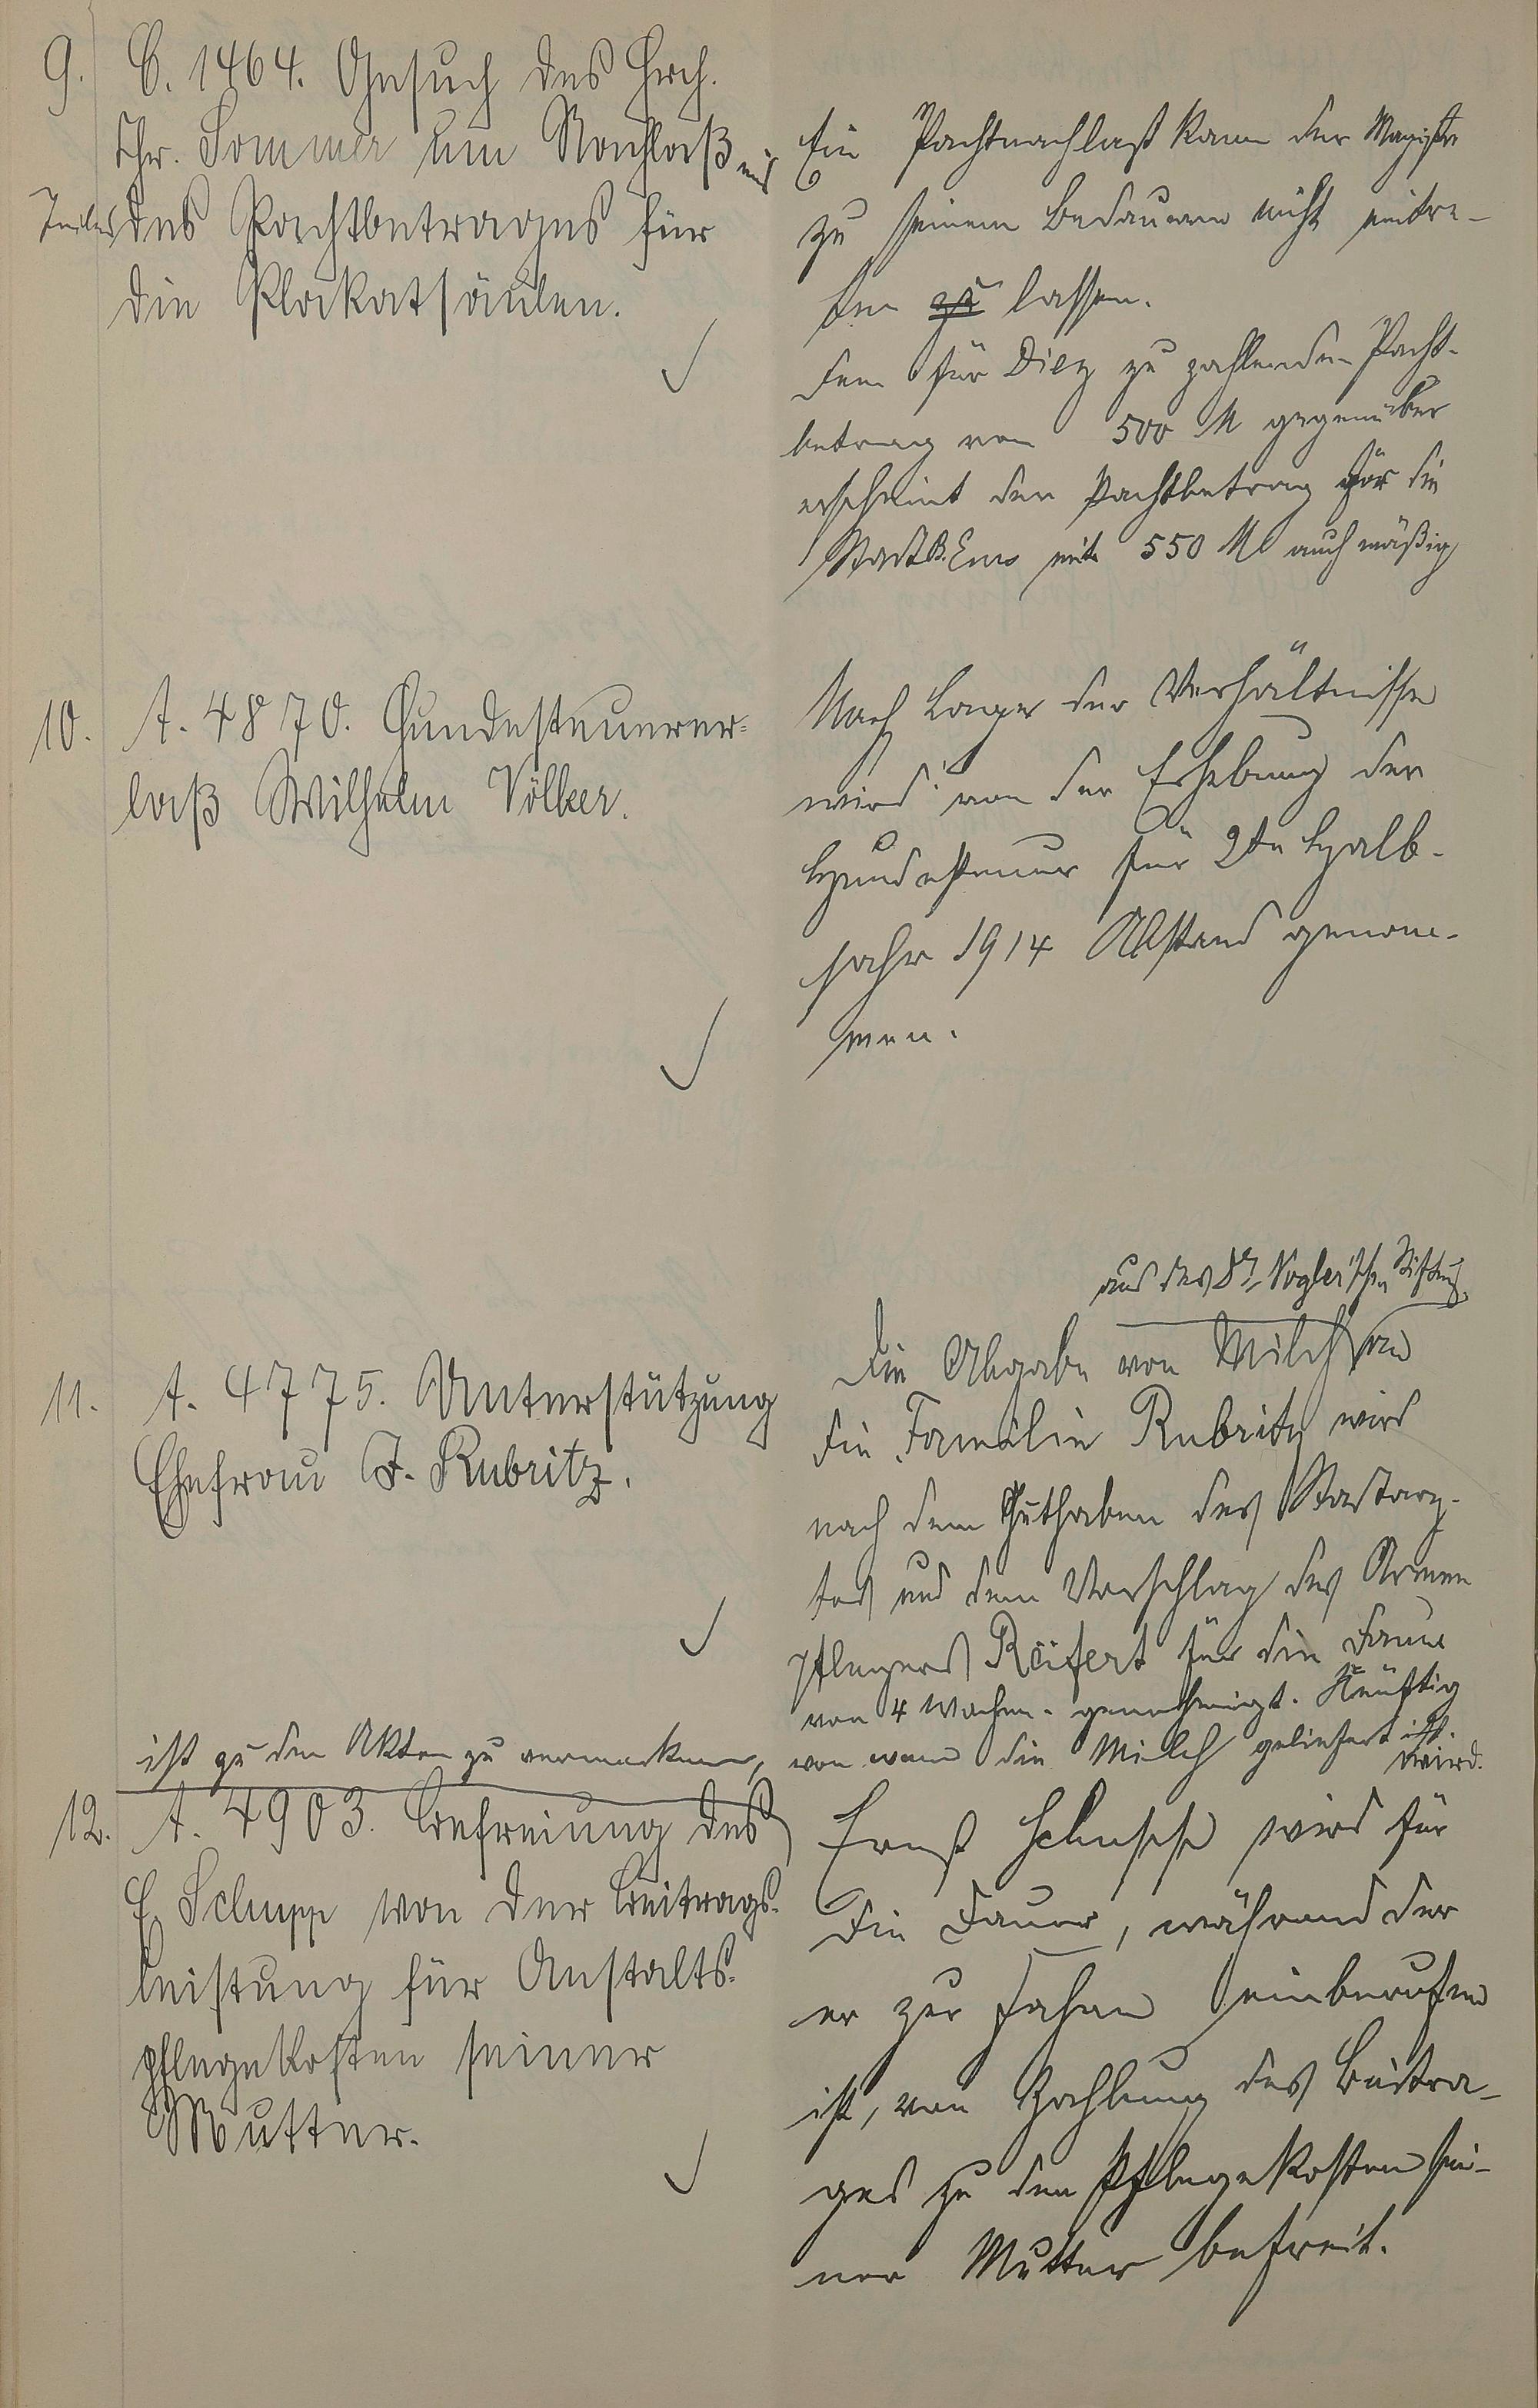 9. C. 1464. Gesuch des Hrch.
Chr. Sommer um Nachlaß eines
Teiles des Pachtbetrages für
die Plakatsäulen.
Ein Pachtnachlaß kann der Magistr
zu seinem Bedauern nicht eintre-
ten zu lassen.
Dem für Diez zu zahlenden Pacht-
betrag von 500 M gegenüber
erscheint der Pachtbetrag für die
Stadt B. Ems mit 550 M auch mäßig
10. A. 4870. Hundesteuerer-
laß Wilhelm Völker.
Nach Lage der Verhältnisse
wird von der Erhebung der
Hundesteuer für 2te Halb-
jahr 1914 Abstand genom-
men.
11. A. 4775. Unterstützung
Ehefrau J. Rubritz.
aus der Dr. Vogler'schen Stiftung
Die Abgabe von Milch an
die Familie Rubritz wird
nach dem Guthaben des Stadtarz-
tes und dem Vorschlag des Armen
pflegers Reifert für die Dauer
von 4 Wochen genehmigt. Künftig
ist zu den Akten zu vermerken, von wem die Milch geliefert ist.
wird.
12. A. 4903. Befreiung des
E. Schupp von der Beitrags-
leistung für Anstalts-
pflegekosten seiner
Mutter.
Ernst Schupp wird für
die Dauer, während der
er zur Fahne einberufen
ist, von Zahlung des Beitra-
ges zu den Pflegekosten sei-
ner Mutter befreit.